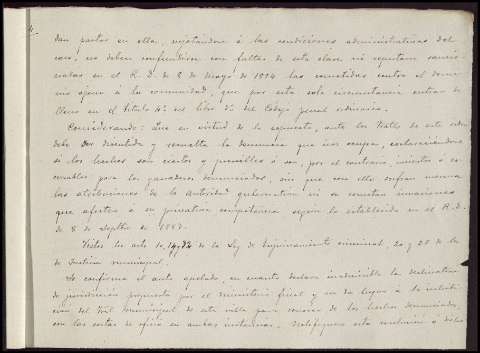 dan pastos en ella, sujetándose á las condiciones administrativas del
caso, no deben confundirse con faltas de esta clase ni reputarse sancio-
nadas en el R. D. de 8 de Mayo de 1884 las cometidas contra el domi-
nio ageno á la comunidad, que por esta sola circunstancia entran de
lleno en el título 4º del libro 3º del Código penal ordinario.
Considerando: Que en virtud de lo expuesto, ante los Trables de este orden
debe ser discutida y resuelta la denuncia que nos ocupa, esclareciendose
si los hechos son ciertos y punibles ó son, por el contrario inciertos ó es-
cusables para los ganaderos denunciados, sin que con ello sufran merma
las atribuciones de la autoridad gubernativa ni se cometan invasiones
que afecten á su privativa competencia, según lo establecido en el R. D.
de 8 de Septbre de 1887.
Vistos los arts 10, 14, de la Ley de Enjuiciamiento criminal, 20 y 28 de la
de Justicia municipal.
Se confirma el auto apelado, en cuanto declara inadmisible la declinatoria
de jurisdicción propuesta por el Ministerio fiscal y no da lugar á la inhibi-
cion del Tral municipal de esta villa para conocer de los hechos denunciados,
con las costas de oficio en ambas instancias. Notifíquese esta resolución á dicho